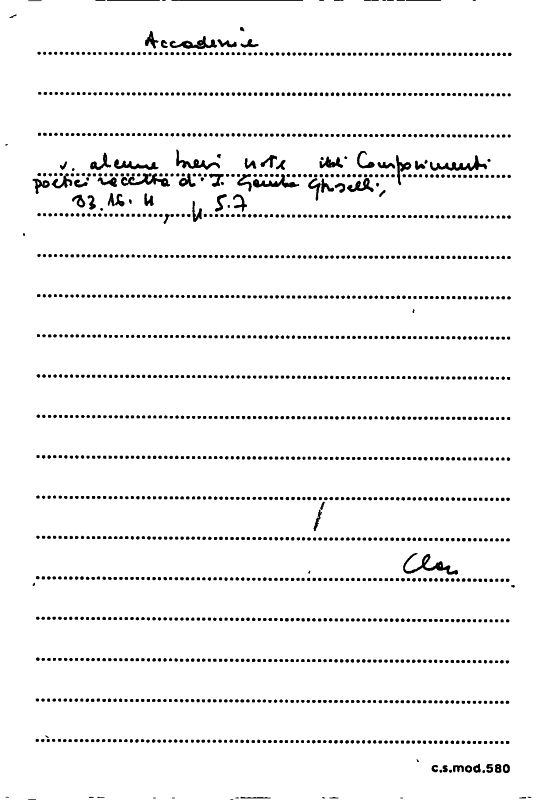 Accademie
v. alcune brevi note Componimenti
poetici raccolta di I. Gamba Ghiselli,
33.16.H, p. 5.7
c.s.mod.580